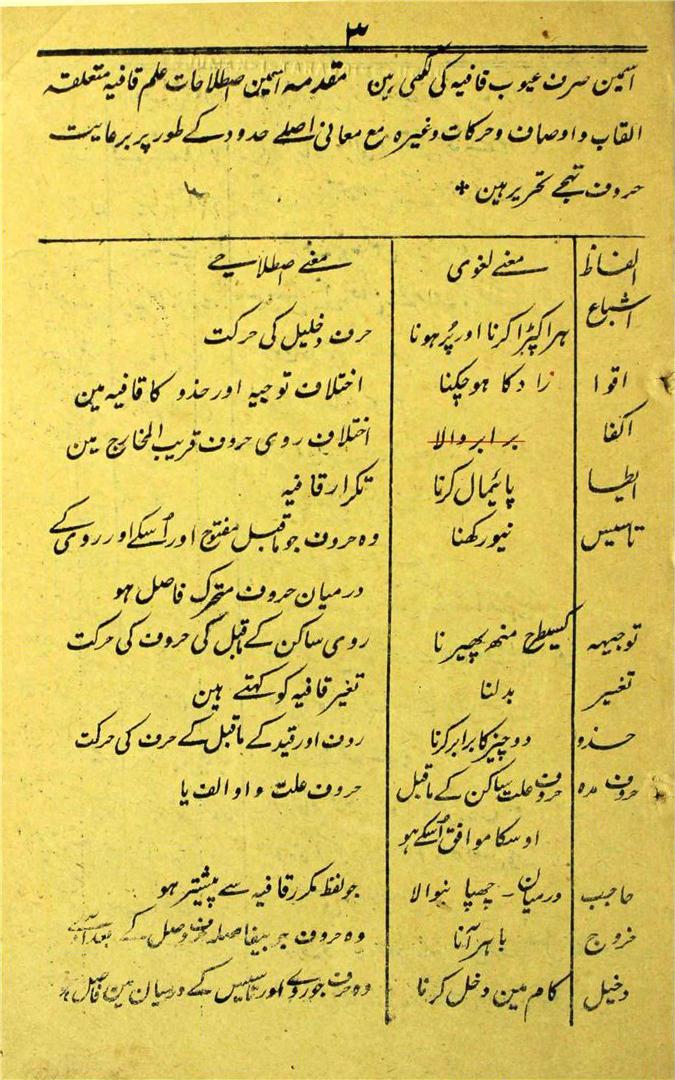 ۳
اسمین صرف عیوب قافیہ کی لکھی ہین مقدمہ اسمین اصطلاحات علم قافیہ متعلقہ
القاب و اوصاف و حرکات وغیرہ مع معانی اصلے حدود کے طور پر برعایت
حروف تہجے تحریر ہین *
الفاظ معنے لغوی معنے اصطلاحے
اشباع ہرا کپڑا کرنا اور پُر ہونا حرف دخیل کی حرکت
اقوا زاد کا ہو چکنا اختلاف توجیہ اور حذو کا قافیہ مین
اکفا برابر والا اختلاف روی حروف قریب المخارج مین
ایطا پائیمال کرنا تکرار قافیہ
تاسیس نیو رکھنا وہ حروف جو ماقبل مفتوح اور اُسکے اور روی کے
درمیان حروف متحرک فاصل ہو
توجیہہ کسیطرح منھ پھیرنا روی ساکن کے ماقبل کی حروف کی حرکت
تغیر بدلنا تغیر قافیہ کو کہتے ہین
حذو دو چیز کا برابر کرنا ردف اور قید کے ماقبل کے حرف کی حرکت
حروف مدہ حروف علت ساکن کے ماقبل حروف علت واو الف یا
اوسکا موافق اُسکے ہو
حاجب درمیان - چھپانیوالا جو لفظ مکرر قافیہ سے پیشتر ہو
خروج باہر آنا وہ حروف جو بیفاصلہ حرف وصل کے بعد آے
دخیل کام مین دخل کرنا وہ حرف جو روے اور تاسیس کے درمیان مین فاصل ہو